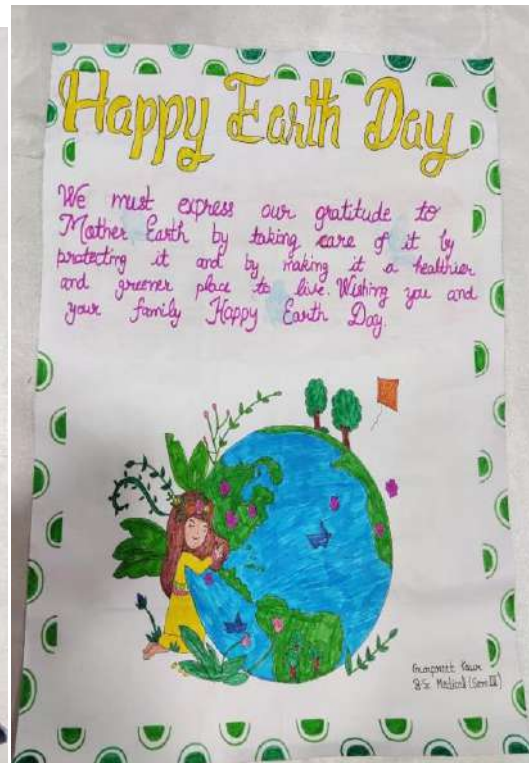 Happy Earth Day
We must express our gratitude to
Mother Earth by taking care of it by
protecting it and by making it a healthier
and greener place to live. Wishing you and
your family Happy Earth Day.
Gurpreet Kaur
B.Sc Medical (Sem II)